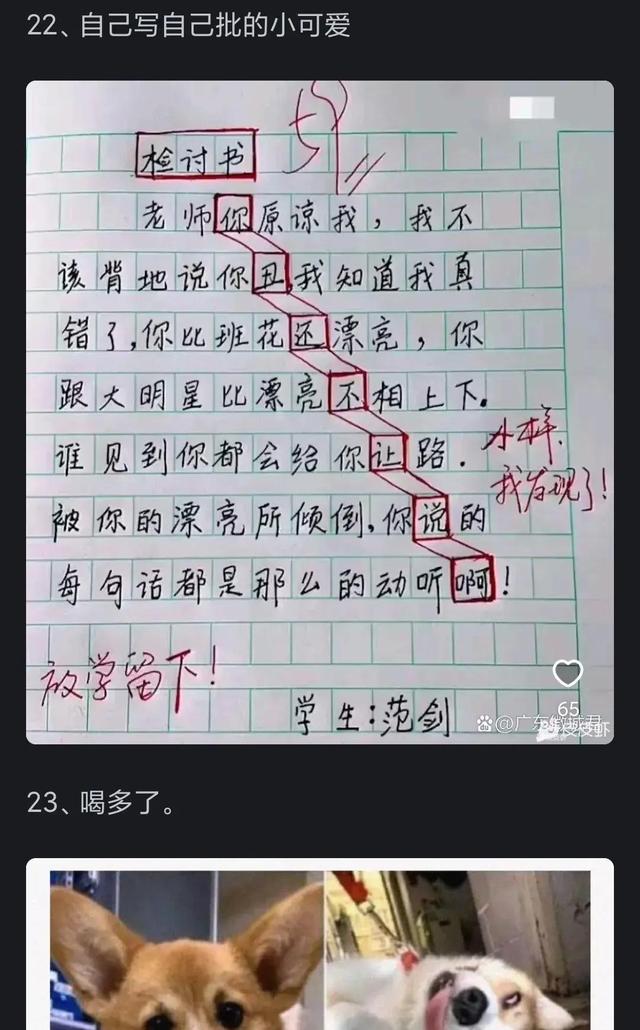 22、自己写自己批的小可爱
59
检讨书
老师你原谅我，我不
该背地说你丑,我知道我真
错了,你比班花还漂亮，你
跟大明星比漂亮不相上下。
谁见到你都会给你让路.
小样,
我发现了!
被你的漂亮所倾倒,你说的
每句话都是那么的动听啊!
放学留下!
学生:范剑
65
23、喝多了。